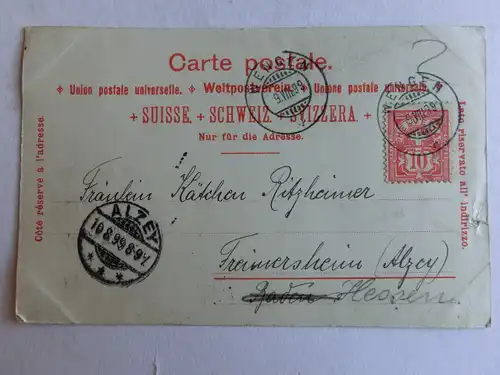 Carte postale.
+ Union postale universelle. + Weltpostverein. + Unione postale universale. +
+ SUISSE. + SCHWEIZ. + SVIZZERA. +
Nur für die Adresse.
Côté réservé à l'adresse.
Lato riservato all' indirizzo.
WENGEN
9.VIII.99
WENGEN
9.VIII.99
10
2
Fräulein Kätchen Ritzheimer
ALZEY
10.8.99.8-9V
Freimersheim (Alzey)
Baden Hessen